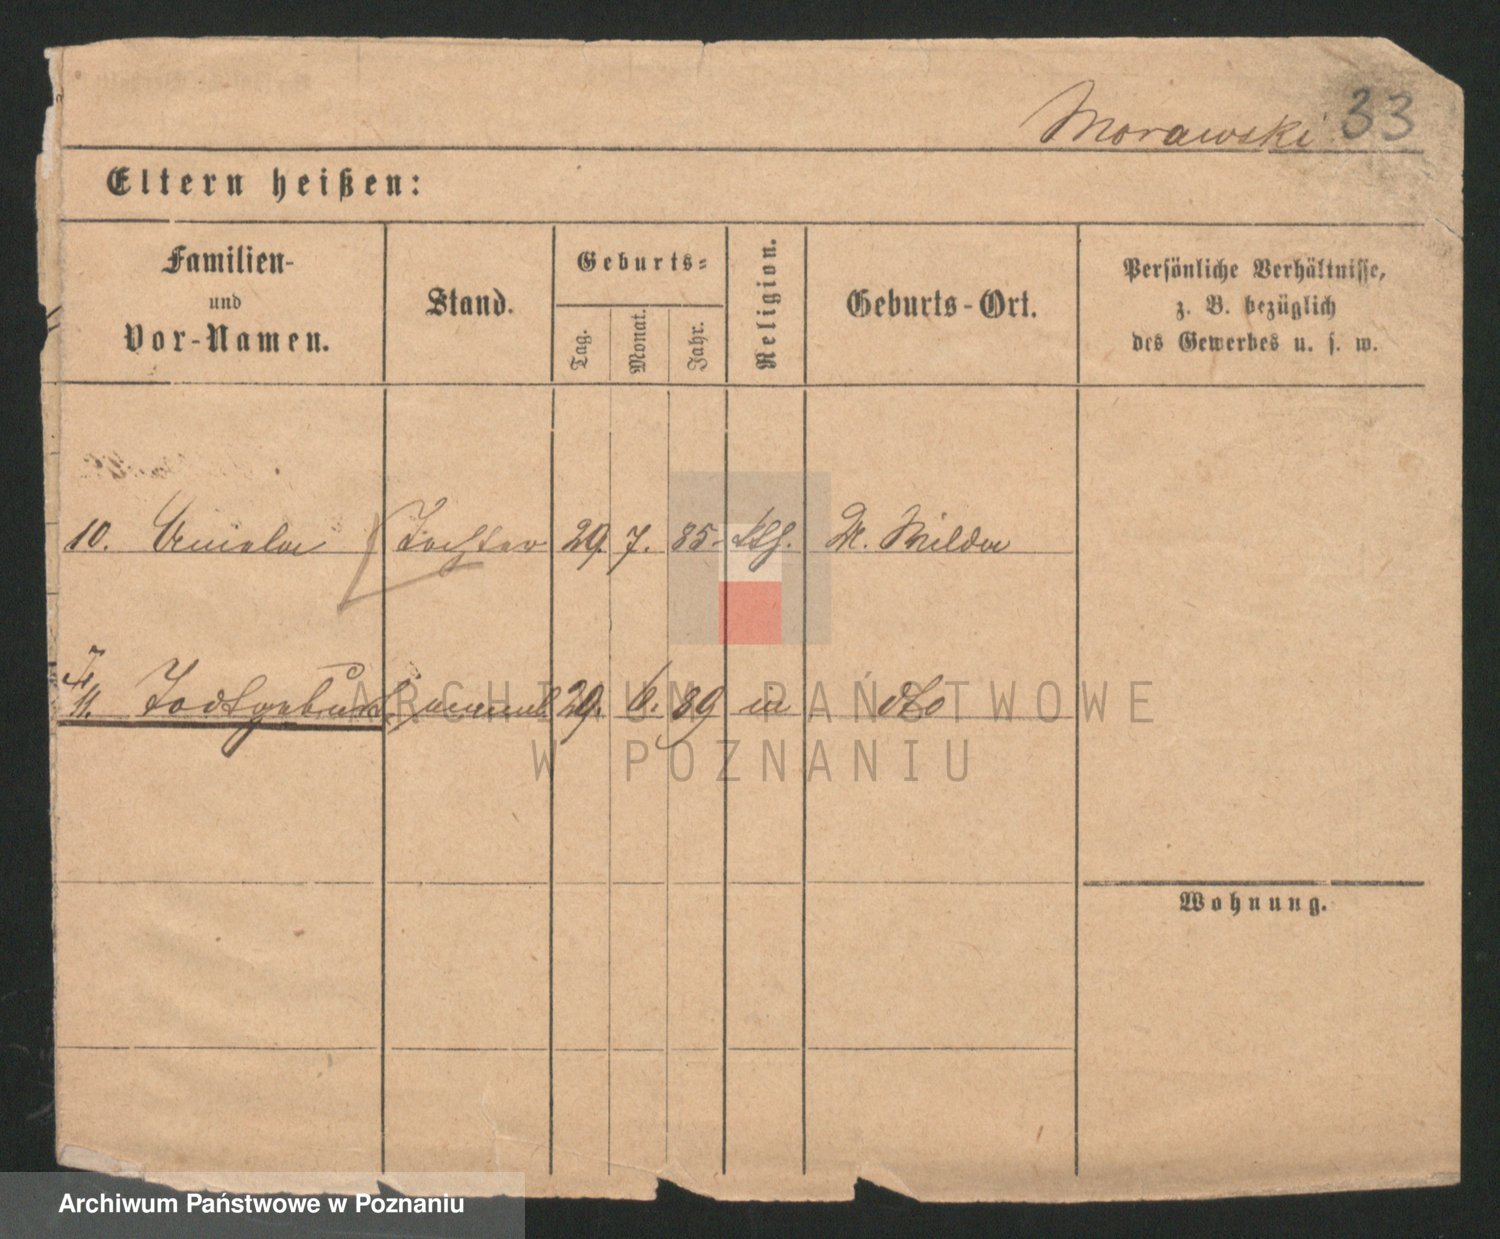 Morawski 33
Eltern heißen:
Familien-
und
Vor-Namen.
Stand.
Geburts-
Tag.
Monat.
Jahr.
Religion.
Geburts-Ort.
Persönliche Verhältnisse,
z. B. bezüglich
des Gewerbes u. s. w.
10. Aniela Tochter 29. 7. 85. kth. Dt. Wilda
11. Todtgeburt 29. 6. 89 dto
ARCHIWUM PAŃSTWOWE
W POZNANIU
Wohnung.
Archiwum Państwowe w Poznaniu